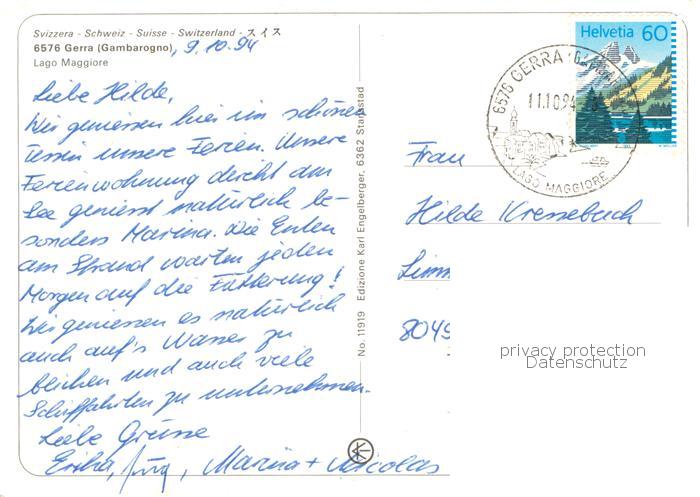 Svizzera - Schweiz - Suisse - Switzerland - スイス
6576 Gerra (Gambarogno), 9.10.94
Lago Maggiore
Liebe Hilde,
Wir geniessen hier im schönen
Tessin unsere Ferien. Unsere
Ferienwohnung direkt am
See geniesst natürlich be-
sonders Marina. Die Enten
am Strand warten jeden
Morgen auf die Fütterung!
Wir geniessen es natürlich
auch auf's Wasser zu
blicken und auch viele
Schiffahrten zu unternehmen.
Liebe Grüsse
Erika, Jürg, Marina + Nicolas
No. 11919 Edizione Karl Engelberger, 6362 Stansstad
Helvetia 60
6576 GERRA
11.10.94
LAGO MAGGIORE
Frau
Hilde Kressebuch
Limm
8049
privacy protection
Datenschutz